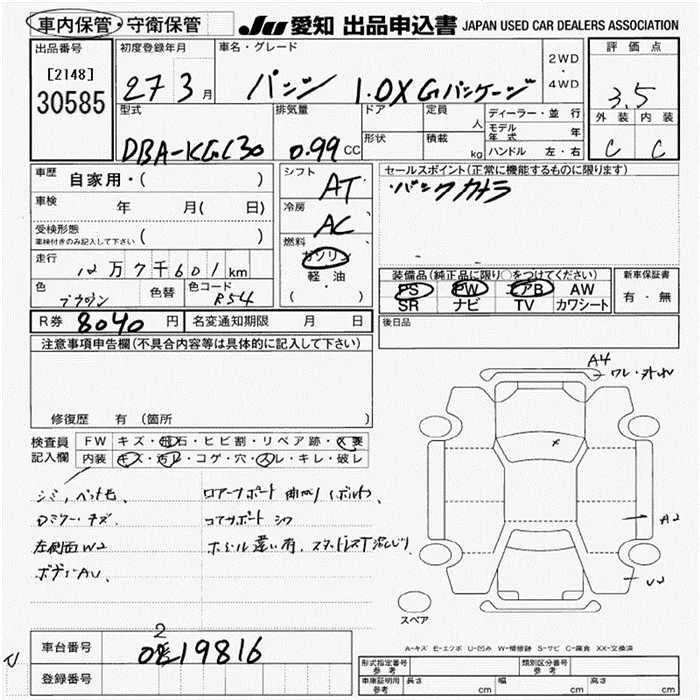 車内保管・守衛保管 JU 愛知 出品申込書 JAPAN USED CAR DEALERS ASSOCIATION
出品番号 初度登録年月 車名・グレード 2WD・4WD 評価点
[2148] 27 3月 1.0X Gパッケージ 3.5
30585
外装 内装
C C
型式 排気量 ドア 定員 人 ディーラー・並行
DBA-KGC30 0.99CC 形状 積載 kg モデル年式 年
ハンドル 左・右
車歴 自家用・( ) シフト AT セールスポイント(正常に機能するものに限ります)
車検 年 月( 日) 冷房 AC バックカメラ
受検形態 車検付きのみ記入して下さい ( ) 燃料 ガソリン
走行 12万7千601km 軽・油
( ・ )
装備品(純正品に限り○をつけてください) 新車保証書
色 ブラウン 色替 色コード R54 PS PW エアB AW 有・無
SR ナビ TV カワシート
R券 8040円 名変通知期限 月 日 後日品
注意事項申告欄(不具合内容等は具体的に記入して下さい)
修復歴 有 (箇所
A4 ワレ・
検査員記入欄 FW キズ・飛石・ヒビ割・リペア跡・X要
内装 キズ・汚レ・コゲ・穴・スレ・キレ・破レ
シミ、ペット毛、 ロアーサポート 曲がり(ボルト)、
Dミラー キズ、 コアサポート シワ
左側面 W2 ホイール違い有、スタッドレスT
A2
スペア
2
車台番号 019816
登録番号
A-キズ E-エクボ U-凹み W-補修跡 S-サビ C-腐食 XX-交換済
形式指定番号 参考 類別区分番号 参考
車庫証明用 参考 長さ cm 幅 cm 高さ cm